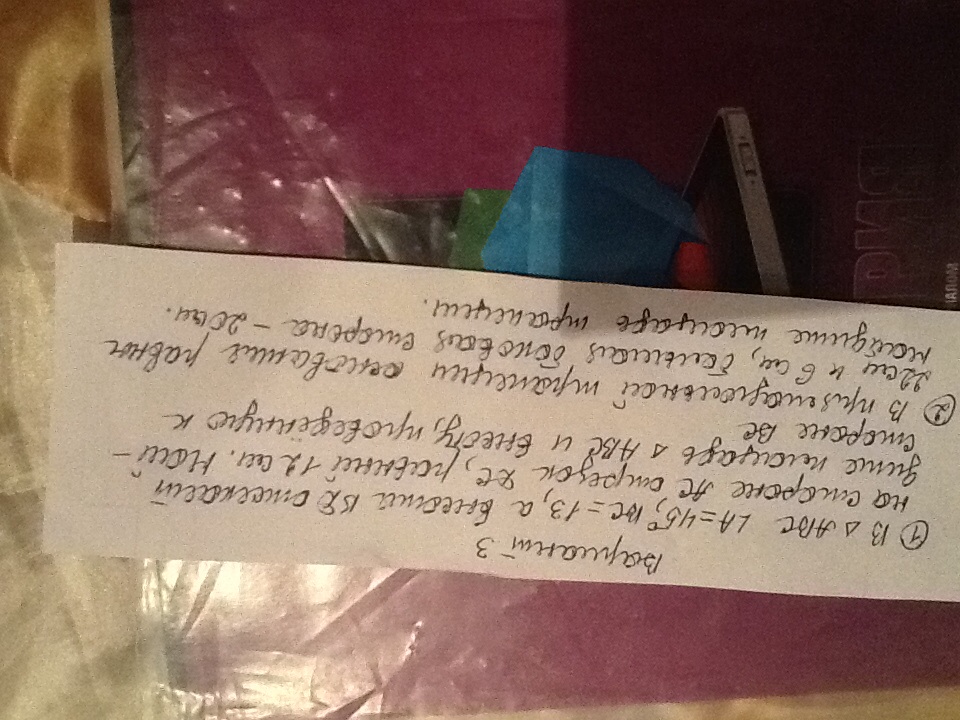 Вариант 3
① В △ ABC ∠A=45°, BC=13, а высота BD отсекает
на стороне AC отрезок DC, равный 12 см. Най-
дите площадь △ ABC и высоту, проведённую к
стороне BC
② В прямоугольной трапеции основания равны
22 см и 6 см, большая боковая сторона – 20 см.
Найдите площадь трапеции.
РИЯ